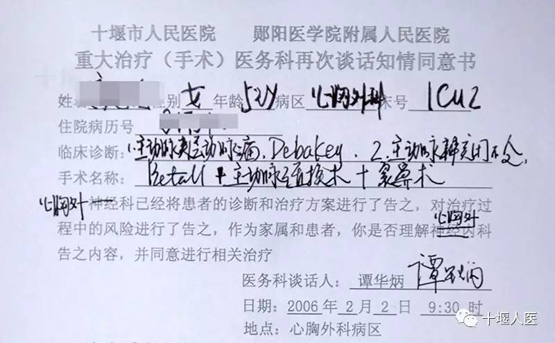 十堰市人民医院 郧阳医学院附属人民医院
重大治疗（手术）医务科再次谈话知情同意书
姓 性别 女 年龄 52Y 病区 心胸外科 床号 ICU2
住院病历号
临床诊断：1.主动脉夹层动脉瘤.Debakey. 2.主动脉瓣关闭不全
手术名称：Betall + 主动脉 术 + 象鼻术
心胸外 神经科已经将患者的诊断和治疗方案进行了告之，对治疗过
心胸外
程中的风险进行了告之，作为家属和患者，你是否理解神经内科
告之内容，并同意进行相关治疗
医务科谈话人：谭华炳 谭华炳
日期：2006 年 2 月 2 日 9:30 时
地点：心胸外科病区
十堰人医